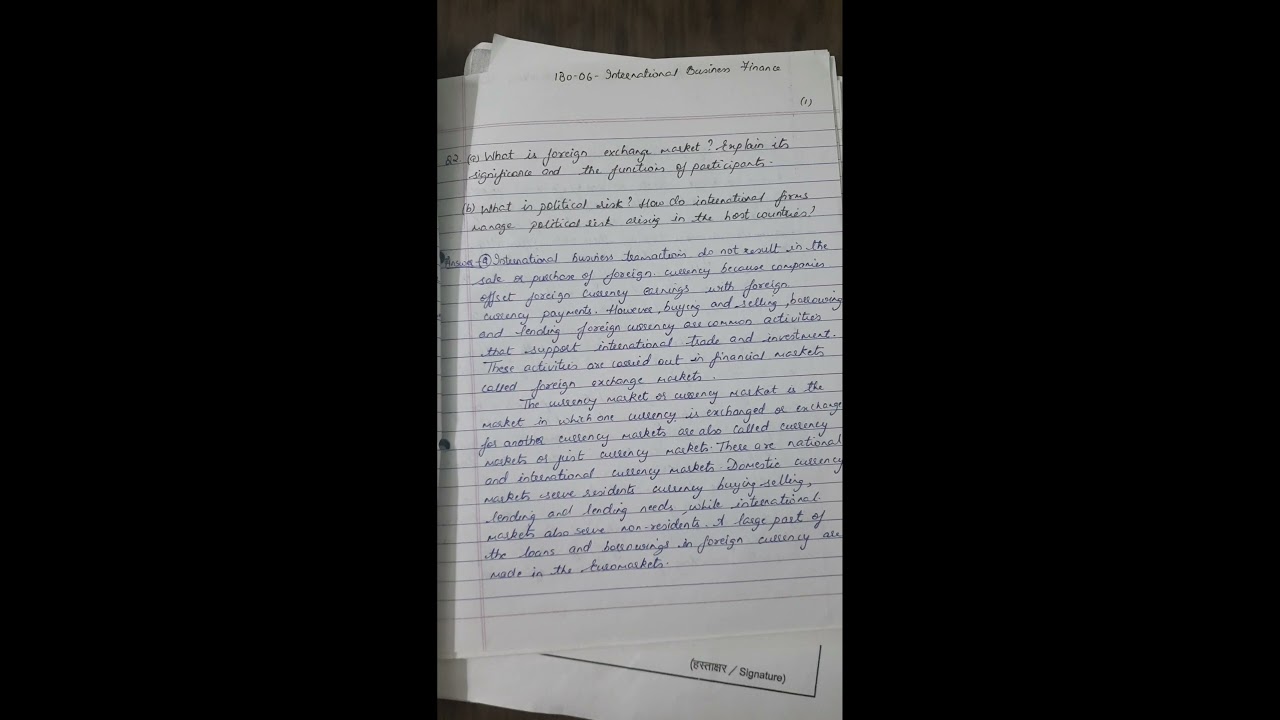 IBO-06- International Business Finance
(1)
Q2 (a) What is foreign exchange market? Explain its
significance and the functions of participants.
(b) What is political risk? How do international firms
manage political risk arising in the host countries?
Answer (a) International business transactions do not result in the
sale or purchase of foreign currency because companies
offset foreign currency earnings with foreign
currency payments. However, buying and selling, borrowing
and lending foreign currency are common activities
that support international trade and investment.
These activities are carried out in financial markets
called foreign exchange markets.
The currency market or currency market is the
market in which one currency is exchanged or exchange
for another currency markets are also called currency
markets or just currency markets. These are national
and international currency markets. Domestic currency
markets serve residents currency buying, selling,
lending and lending needs, while international
markets also serve non-residents. A large part of
the loans and borrowings in foreign currency are
made in the Euromarkets.
(हस्ताक्षर / Signature)